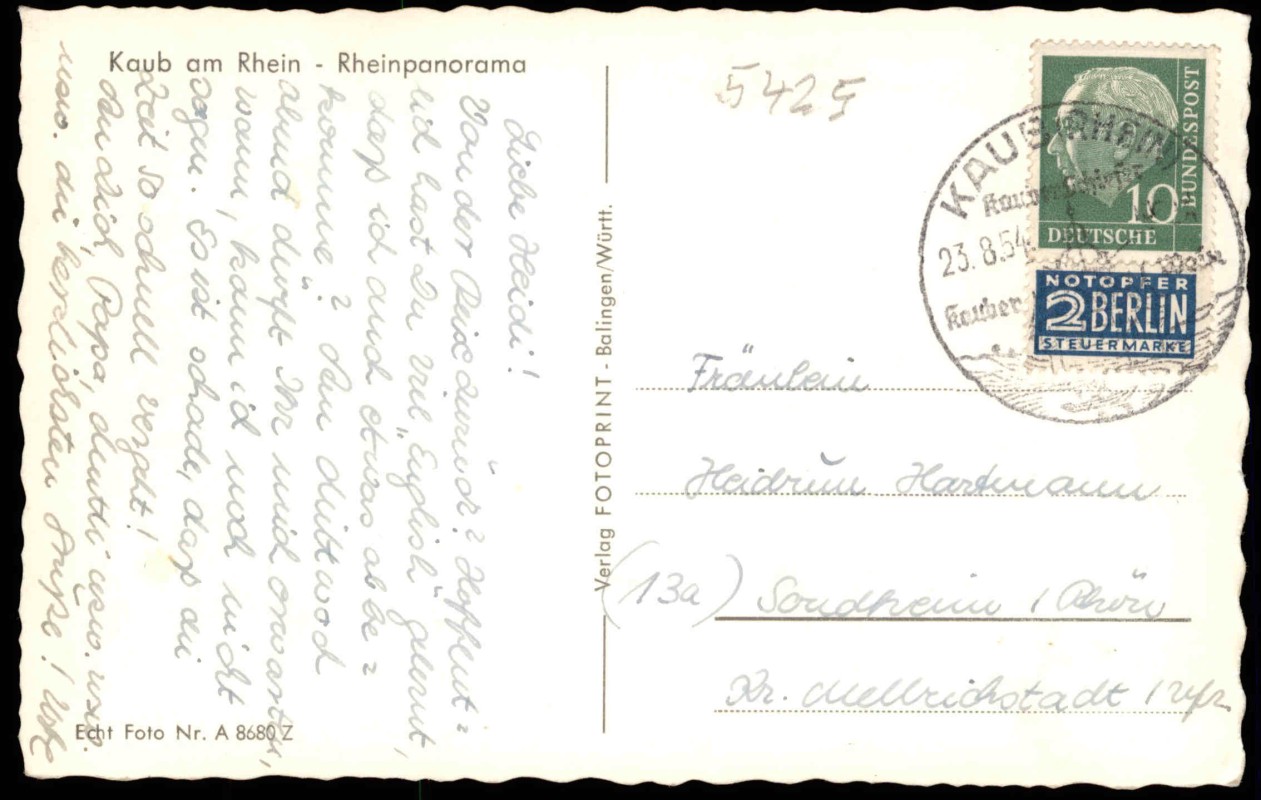 Kaub am Rhein - Rheinpanorama
Liebe Heidi!
Von der Reise zurück? Hoffent-
lich hast Du viel „Englisch" gelernt,
dass ich auch etwas abbe-
komme? Am Mittwoch
abend dürft Ihr mich erwarten,
wann, kann ich noch nicht
sagen. Es ist schade, dass die
Zeit so schnell vergeht!
An Dich, Papa, Mutti usw. usw.
usw. die herzlichsten Grüße!
Echt Foto Nr. A 8680 Z
Verlag FOTOPRINT - Balingen/Württ.
5425
KAUB RHEIN
23.8.54
Kauber
10
DEUTSCHE
BUNDESPOST
NOTOPFER
2 BERLIN
STEUERMARKE
Fräulein
Heidrun Hartmann
(13a) Sondheim / Rhön
Kr. Mellrichstadt / Ufr.